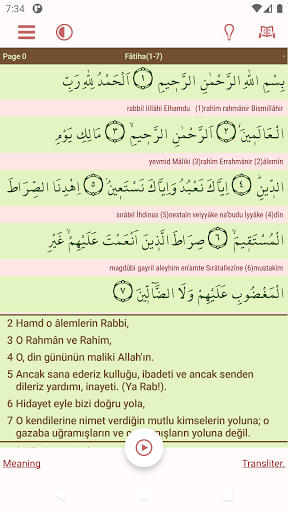 7:34
Page 0 Fâtiha(1-7)
بِسْمِ اللهِ الرَّحْمٰنِ الرَّحٖيمِ ١ اَلْحَمْدُ لِلّٰهِ رَبِّ
rabbil lillâhi Elhamdu (1)rahîm rahmânir Bismillâhir
الْعَالَمٖينَۙ ٢ اَلرَّحْمٰنِ الرَّحٖيمِۙ ٣ مَالِكِ يَوْمِ
yevmid Mâliki (3)rahîm Errahmânir (2)âlemîn
الدّٖينِۜ ٤ اِيَّاكَ نَعْبُدُ وَاِيَّاكَ نَسْتَعٖينُۜ ٥ اِهْدِنَا الصِّرَاطَ
sırâtel İhdinas (5)nestaîn veiyyâke na'budu İyyâke (4)dîn
الْمُسْتَقٖيمَۙ ٦ صِرَاطَ الَّذٖينَ اَنْعَمْتَ عَلَيْهِمْۙ غَيْرِ
magdûbi gayril aleyhim en'amte Sırâtallezîne (6)mustakîm
الْمَغْضُوبِ عَلَيْهِمْ وَلَا الضَّٓالّٖينَ ٧
2 Hamd o âlemlerin Rabbi,
3 O Rahmân ve Rahim,
4 O, din gününün maliki Allah'ın.
5 Ancak sana ederiz kulluğu, ibadeti ve ancak senden
dileriz yardımı, inayeti. (Ya Rab!).
6 Hidayet eyle bizi doğru yola,
7 O kendilerine nimet verdiğin mutlu kimselerin yoluna; o
gazaba uğramışların ve o mışların yoluna değil.
Meaning Transliter.